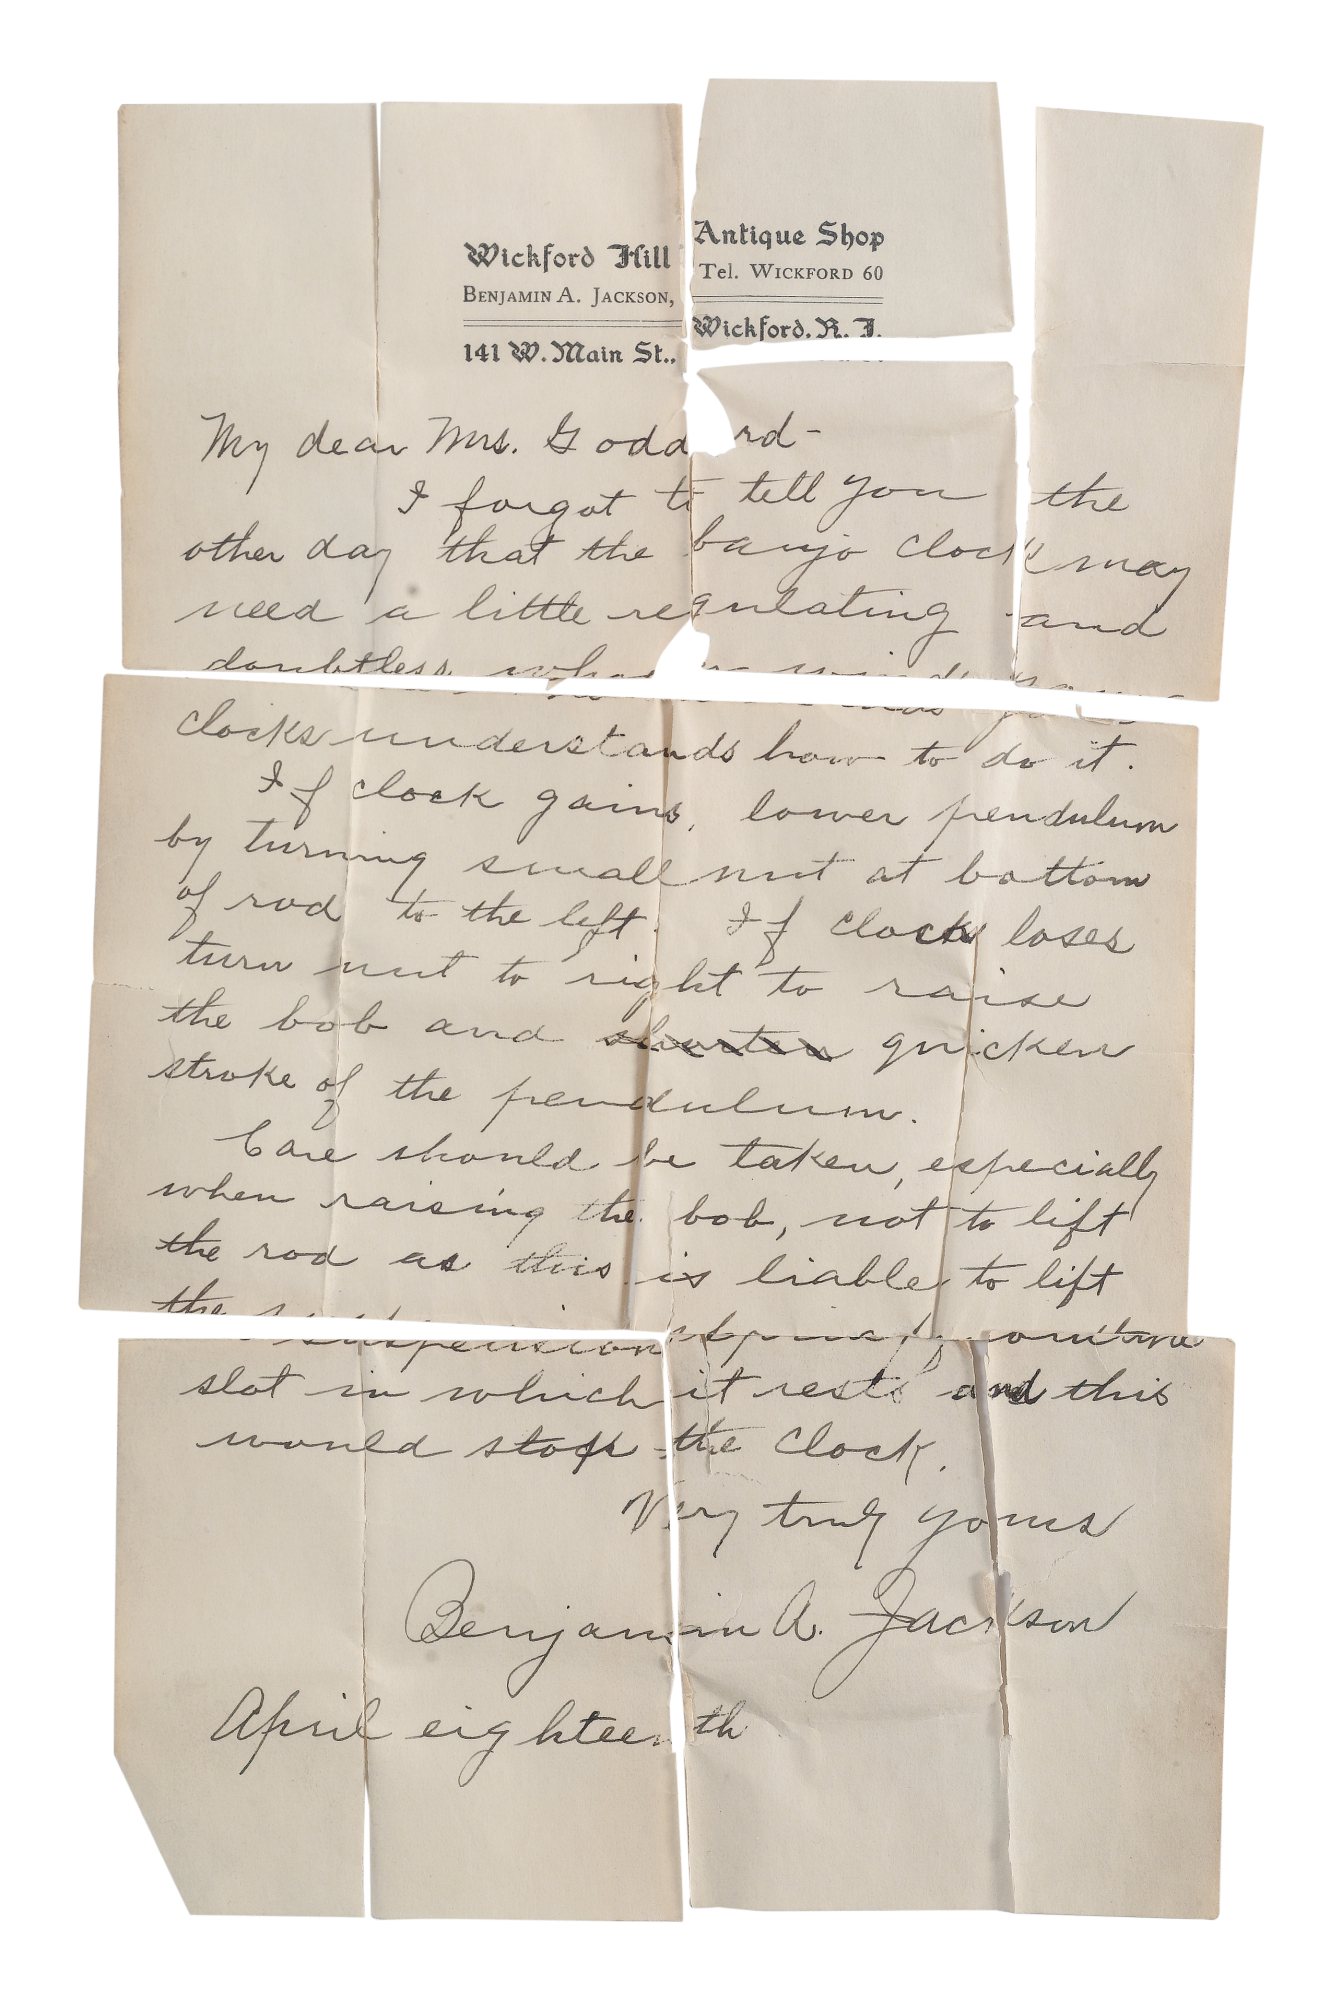 Wickford Hill Antique Shop
Benjamin A. Jackson, Tel. Wickford 60
141 W. Main St., Wickford, R. I.
My dear Mrs. Godd rd-
I forgot to tell you the
other day that the banjo clock may
need a little regulating and
doubtless who winds your
clocks understands how to do it.
If clock gains, lower pendulum
by turning small nut at bottom
of rod to the left. If clock loses
turn nut to right to raise
the bob and shorten quicken
stroke of the pendulum.
Care should be taken, especially
when raising the bob, not to lift
the rod as this is liable to lift
the suspension spring out
slot in which it rests and this
would stop the clock.
Very truly yours
Benjamin A. Jackson
April eighteenth